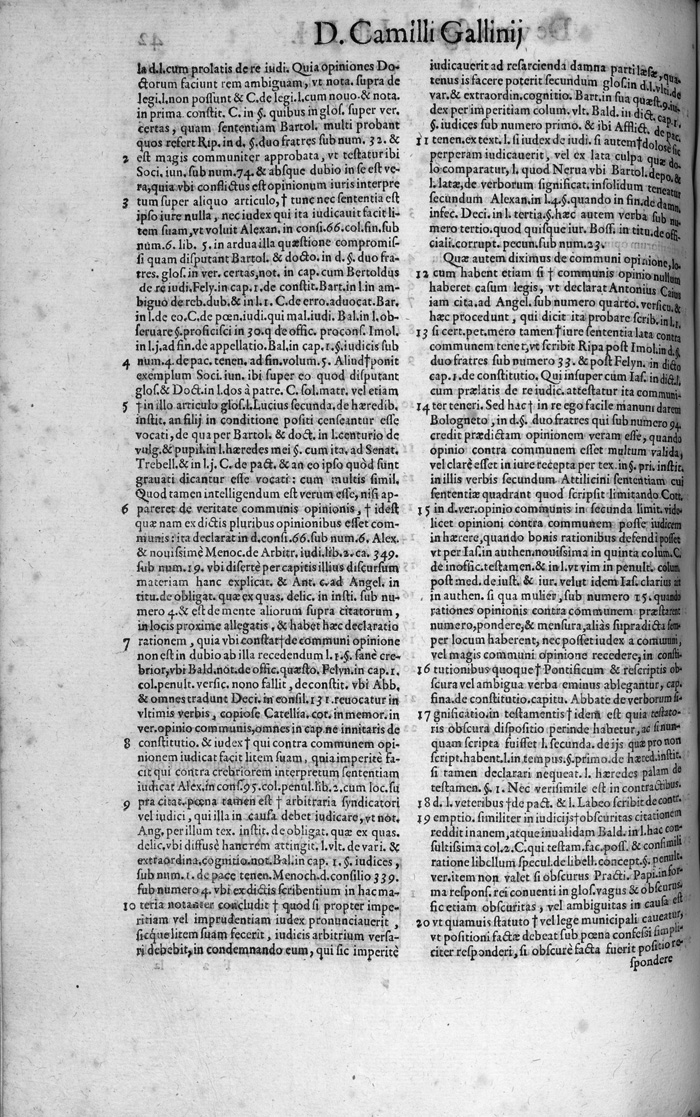 D. Camilli Gallinij
la d.l.cum prolatis de re iudi. Quia opiniones Do-
ctorum faciunt rem ambiguam, vt nota. supra de
legi.l.non possunt & C. de legi.l.cum nouo & nota.
in prima constit. C. in §. quibus in glos. super ver.
certas, quam sententiam Bartol. multi probant
quos refert Rip. in d. §. duo fratres sub num. 32. &
2 est magis communiter approbata, vt testatur ibi
Soci. iun. sub num. 74. & absque dubio in se est ve-
ra, quia vbi conflictus est opinionum iuris interpre
3 tum super aliquo articulo, † tunc nec sententia est
ipso iure nulla, nec iudex qui ita iudicauit facit li-
tem suam, vt voluit Alexan. in consi. 66. col. fin. sub
num. 6. lib. 5. in ardua illa quæstione compromis-
si quam disputant Bartol. & docto. in d. §. duo fra-
tres. glos. in ver. certas, not. in cap. cum Bertoldus
de re iudi. Fely. in cap. 1. de constit. Bart. in l. in am-
biguo de reb. dub. & in l. 1. C. de erro. aduocat. Bar.
in l. de eo. C. de pœn. iudi. qui mal. iudi. Bal. in l. ob-
seruare §. proficisci in 30. q de offic. procons. Imol.
in l. j. ad fin. de appellatio. Bal. in cap. 1. §. iudices sub
4 num. 4. de pac. tenen. ad fin. volum. 5. Aliud † ponit
exemplum Soci. iun. ibi super eo quod disputant
glos. & Doct. in l. dos à patre. C. sol. matr. vel etiam
5 † in illo articulo glos. l. Lucius secunda, de hæredib.
instit. an filij in conditione positi censeantur esse
vocati, de qua per Bartol. & doct. in l. centurio de
vulg. & pupil. in l. hæredes mei §. cum ita, ad Senat.
Trebell. & in l. j. C. de pact. & an eo ipso quòd sunt
grauati dicantur esse vocati: cum multis simil.
Quod tamen intelligendum est verum esse, nisi ap-
6 pareret de veritate communis opinionis, † idest
quæ nam ex dictis pluribus opinionibus esset com-
munis: ita declarat in d. consi. 66. sub num. 6. Alex.
& nouissimè Menoc. de Arbitr. iudi. lib. 2. ca. 349.
sub num. 19. vbi disertè per capitis illius discursum
materiam hanc explicat. & Ant. C. ad Angel. in
titu. de obligat. quæ ex quas. delic. in insti. sub nu-
mero 4. & est de mente aliorum supra citatorum,
in locis proxime allegatis, & habet hæc declaratio
7 rationem, quia vbi constat † de communi opinione
non est in dubio ab illa recedendum l. 1. §. sanè cre-
brior, vbi Bald. not. de offic. quæsto. Felyn. in cap. 1.
col. penult. versic. nono fallit, de constit. vbi Abb.
& omnes tradunt Deci. in consil. 131. reuocatur in
vltimis verbis, copiose Catellia. cot. in memor. in
ver. opinio communis, omnes in cap ne innitaris de
8 constitutio. & iudex † qui contra communem opi-
nionem iudicat facit litem suam, quia imperitè fa-
cit qui contra crebriorem interpretum sententiam
iudicat Alex. in cons. 95. col. penul. lib. 2. cum loc. su
9 pra citat. pœna tamen est † arbitraria syndicatori
vel iudici, qui illa in causa debet iudicare, vt not.
Ang. per illum tex. instit. de obligat. quæ ex quas.
delic. vbi diffusè hanc rem attingit. l. vlt. de vari. &
extraordina. cognitio. not. Bal. in cap. 1. §. iudices,
sub num. 1. de pace tenen. Menoch. d. consilio 339.
sub numero 4. vbi ex dictis scribentium in hac ma-
10 teria notanter concludit † quod si propter impe-
ritiam vel imprudentiam iudex pronunciauerit,
sicque litem suam fecerit, iudicis arbitrium versa-
ri debebit, in condemnando eum, qui sic imperitè
iudicauerit ad resarcienda damna parti læsæ, qua-
tenus is facere poterit secundum glos. in d. l. vlti. de
var. & extraordin. cognitio. Bart. in sua quæst. 9. iu-
dex per imperitiam colum. vlt. Bald. in dict. cap. 1.
§. iudices sub numero primo. & ibi Afflict. de pac.
11 tenen. ex text. l. si iudex de iudi. si autem † dolose sic
perperam iudicauerit, vel ex lata culpa quæ do-
lo comparatur, l. quod Nerua vbi Bartol. depo. &
l. latæ, de verborum significat. insolidum teneatur
secundum Alexan. in l. 4. §. quando in fin. de damn.
infec. Deci. in l. tertia. §. hæc autem verba sub nu-
mero tertio. quod quisque iur. Boss. in titu. de offi-
ciali. corrupt. pecun. sub num. 23.
Quæ autem diximus de communi opinione, lo-
12 cum habent etiam si † communis opinio nullum
haberet casum legis, vt declarat Antonius Caius
iam cita. ad Angel. sub numero quarto. versicu. &
hæc procedunt, qui dicit ita probare scrib. in l. 1.
13 si cert. pet. mero tamen † iure sententia lata contra
communem tenet, vt scribit Ripa post Imol. in d. §.
duo fratres sub numero 33. & post Felyn. in dicto
cap. 1. de constitutio. Qui insuper cum Ias. in dict. l.
cum prælatis de re iudic. attestatur ita communi-
14 ter teneri. Sed hac † in re ego facile manum darem
Bologneto, in d. §. duo fratres qui sub numero 94.
credit prædictam opinionem veram esse, quando
opinio contra communem esset multum valida,
vel clarè esset in iure recepta per tex. in §. pri. instit.
in illis verbis secundum Attilicini sententiam cui
sententiæ quadrant quod scripsit limitando Cott.
15 in d. ver. opinio communis in secunda limit. vide-
licet opinioni contra communem posse iudicem
inhærere, quando bonis rationibus defendi posset
vt per Ias. in authen. nouissima in quinta colum. C.
de inoffic. testamen. & in l. vt vim in penult. colum
post med. de iust. & iur. velut idem Ias. clarius ait
in authen. si qua mulier, sub numero 15. quando
rationes opinionis contra communem præstarent
numero, pondere, & mensura, aliàs supradicta sem-
per locum haberent, nec posset iudex a communi,
vel magis communi opinione recedere, in consti-
16 tutionibus quoque † Pontificum & rescriptis ob-
scura vel ambigua verba eminus ablegantur, cap.
fina. de constitutio. capitu. Abbate de verborum si-
17 gnificatio. in testamentis † idem est quia testato-
ris obscura dispositio perinde habetur, ac si nun-
quam scripta fuisset l. secunda. de ijs quæ pro non
script. habent. l. in tempus. §. primo. de hæred. instit.
si tamen declarari nequeat. l. hæredes palam de
testamen. §. 1. Nec verisimile est in contractibus.
18 d. l. veteribus † de pact. & l. Labeo scribit de contr.
19 emptio. similiter in iudicijs † obscuritas citationem
reddit inanem, atque inualidam Bald. in l. hac con-
sultissima col. 2. C. qui testam. fac. poss. & consimili
ratione libellum specul. de libell. concept. §. penult.
ver. item non valet si obscurus Practi. Papi. in for-
ma respons. rei conuenti in glos. vagus & obscurus.
sic etiam obscuritas, vel ambiguitas in causa est
20 vt quamuis statuto † vel lege municipali caueatur,
vt positioni factæ debeat sub pœna confessi simpli-
citer responderi, si obscurè facta fuerit positio re-
spondere